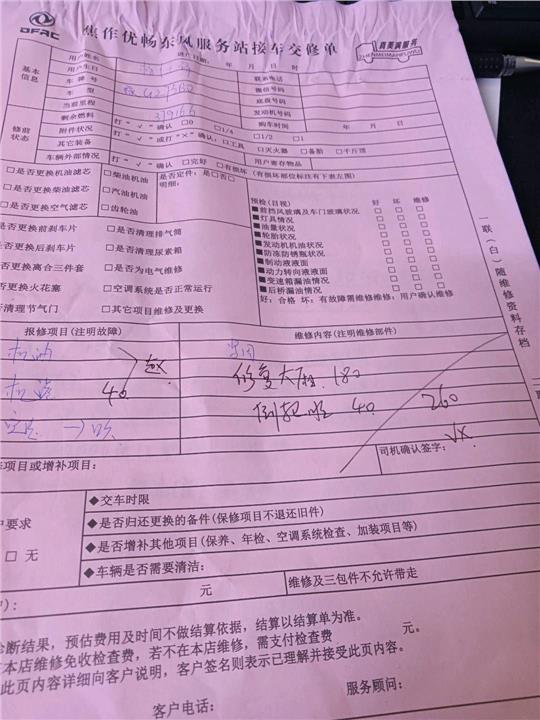 DFAC
焦作优畅东风服务站接车交修单
真美满服务
ZHENMEIMANFUWU
基本信息
用户姓名
进厂日期: 年 月 日 时
用户生日
联系电话
车牌号
微信号码
车型
底盘号码
当前里程
发动机号码
修前状态
剩余燃料 打“√”确认 □0 □1/4 □1/2 □1
购车时间 年 月 日
附件状况 打“√”或打“×”确认, □工具 □灭火器 □备胎 □千斤顶
其它装备
用户寄存物品
车辆外部情况 打“√”确认 □完好 □有损坏 (有损坏部位标注有下表左图)
□是否更换机油滤芯 □柴油机油
□是否更换柴油滤芯 □汽油机油
□是否更换空气滤芯 □齿轮油
是否定件: 是□否□
明细:
是否更换前刹车片 □是否清理排气筒
否更换后刹车片 □是否清理尿素箱
否更换离合三件套 □是否为电气维修
否更换火花塞 □空调系统是否正常运行
否清理节气门 □其它项目维修及更换
预检(目视) 好 坏 维修
■前挡风玻璃及车门玻璃状况 □ □ □
■灯具情况 □ □ □
■油量状况 □ □ □
■轮胎状况 □ □ □
■发动机机油状况 □ □ □
■防冻防锈瓶状况 □ □ □
■制动液液面 □ □ □
■动力转向液液面 □ □ □
■变速箱漏油情况 □ □ □
■后桥漏油情况 □ □ □
好: 合格 坏: 有故障需维修维修: 用户确认维修
一联(白)随维修资料存档
报修项目(注明故障)
维修内容(注明维修部件)
机油
40
180
40
260
修项目或增补项目:
司机确认签字:
户要求
□ 无
◆交车时限
◆是否归还更换的备件(保修项目不退还旧件)
◆是否增补其他项目(保养、年检、空调系统检查、加装项目等)
◆车辆是否需要清洁:
元
维修及三包件不允许带走
诊断结果, 预估费用及时间不做结算依据, 结算以结算单为准。
在本店维修免收检查费, 若不在本店维修, 需支付检查费 元。
此页内容详细向客户说明, 客户签名则表示已理解并接受此页内容。
服务顾问:
客户电话: